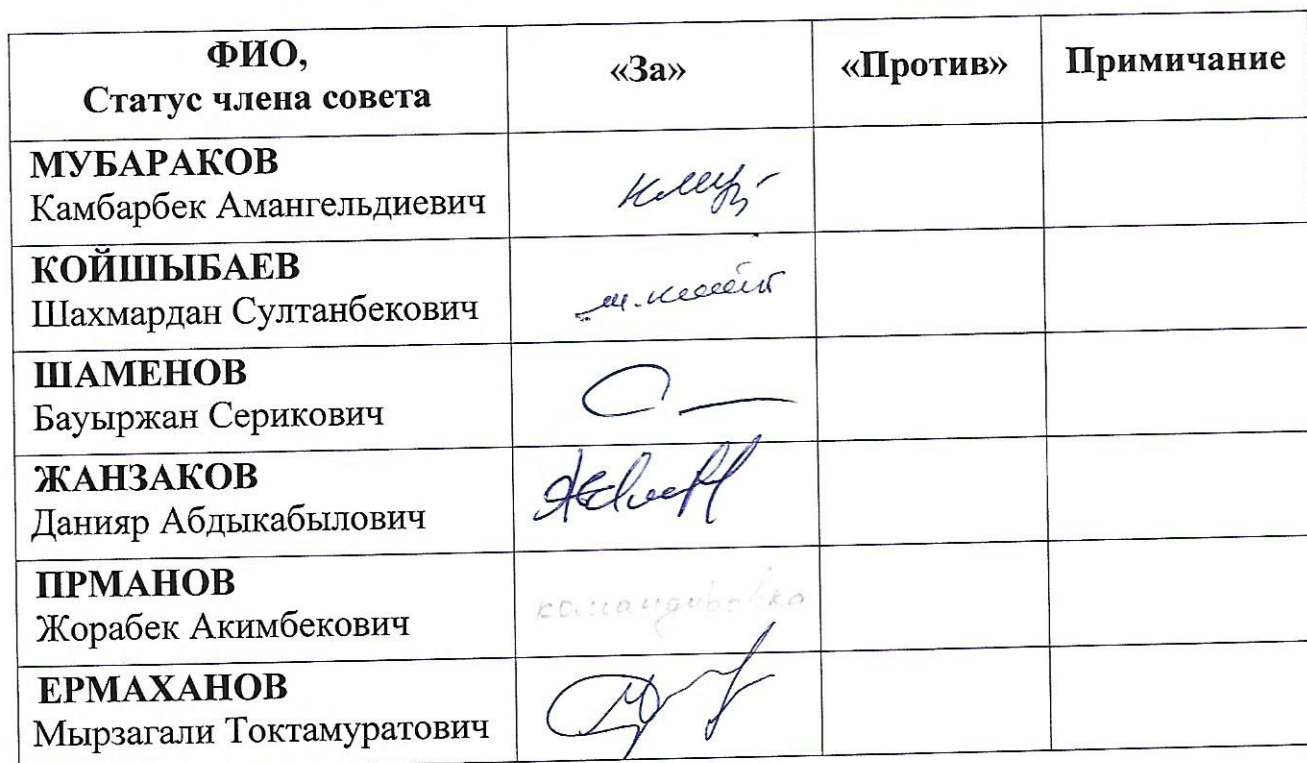 ФИО,
Статус члена совета
«За»
«Против»
Примичание
МУБАРАКОВ
Камбарбек Амангельдиевич
КОЙШЫБАЕВ
Шахмардан Султанбекович
ШАМЕНОВ
Бауыржан Серикович
ЖАНЗАКОВ
Данияр Абдыкабылович
ПРМАНОВ
Жорабек Акимбекович
командировка
ЕРМАХАНОВ
Мырзагали Токтамуратович